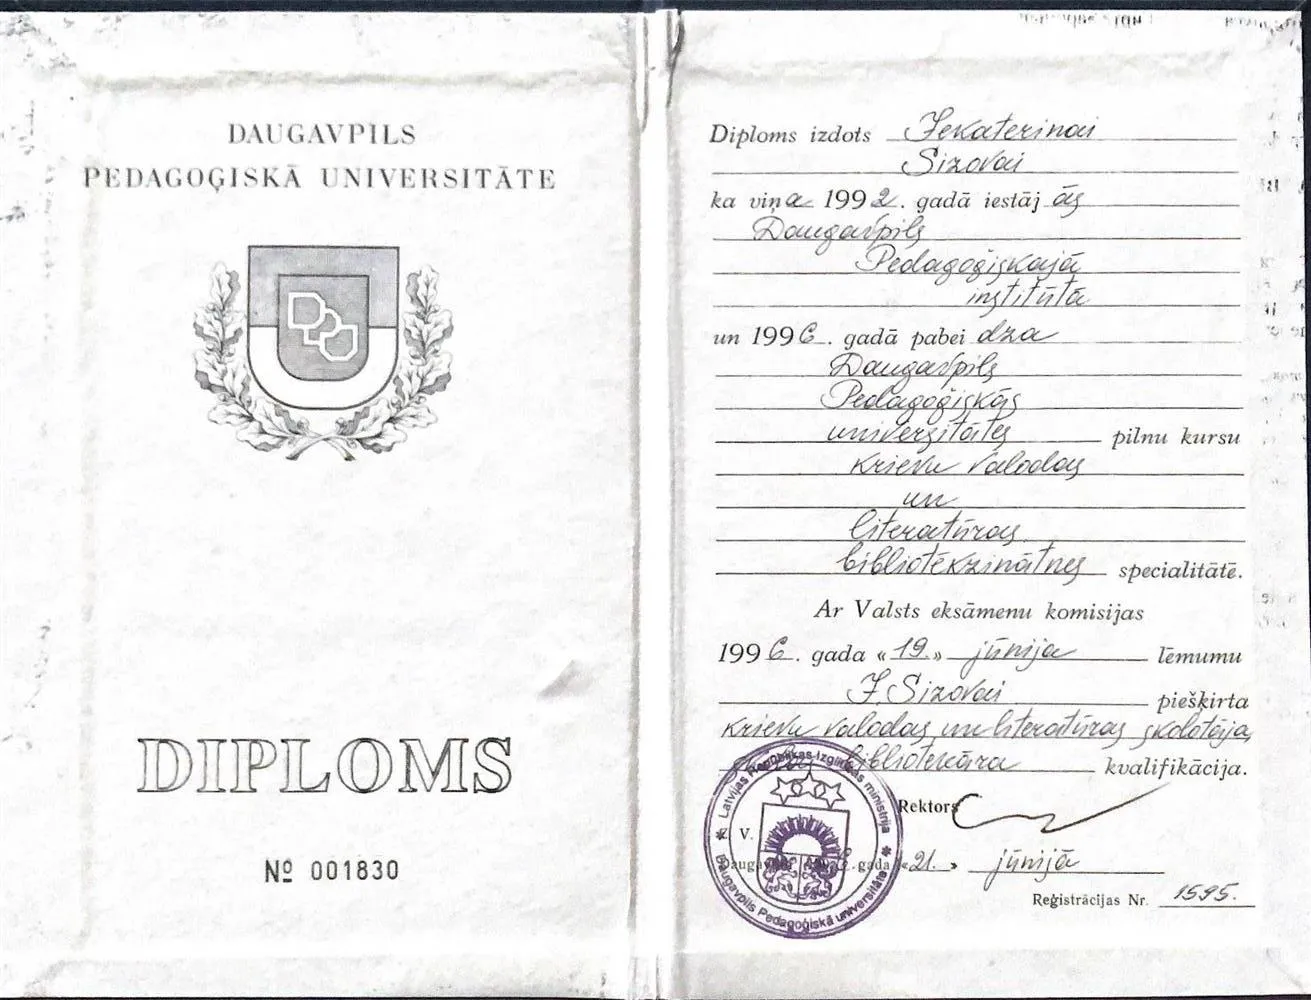 DAUGAVPILS
PEDAGOĢISKĀ UNIVERSITĀTE
DIPLOMS
№ 001830
Diploms izdots Jekaterinai
Sizovai
ka viņa 1992. gadā iestājās
Daugavpils
Pedagoģiskajā
institūtā
un 1996. gadā pabeidza
Daugavpils
Pedagoģiskās
universitātes pilnu kursu
krievu valodas
un
literatūras
bibliotēkzinātnes specialitātē.
Ar Valsts eksāmenu komisijas
1996. gada «19.» jūnija lēmumu
J. Sizovai piešķirta
krievu valodas un literatūras skolotāja,
bibliotekāra kvalifikācija.
Latvijas Republikas Izglītības ministrija
Daugavpils Pedagoģiskā universitāte
Rektors
Z. V.
gada «21.» jūnijā
Reģistrācijas Nr. 1595.